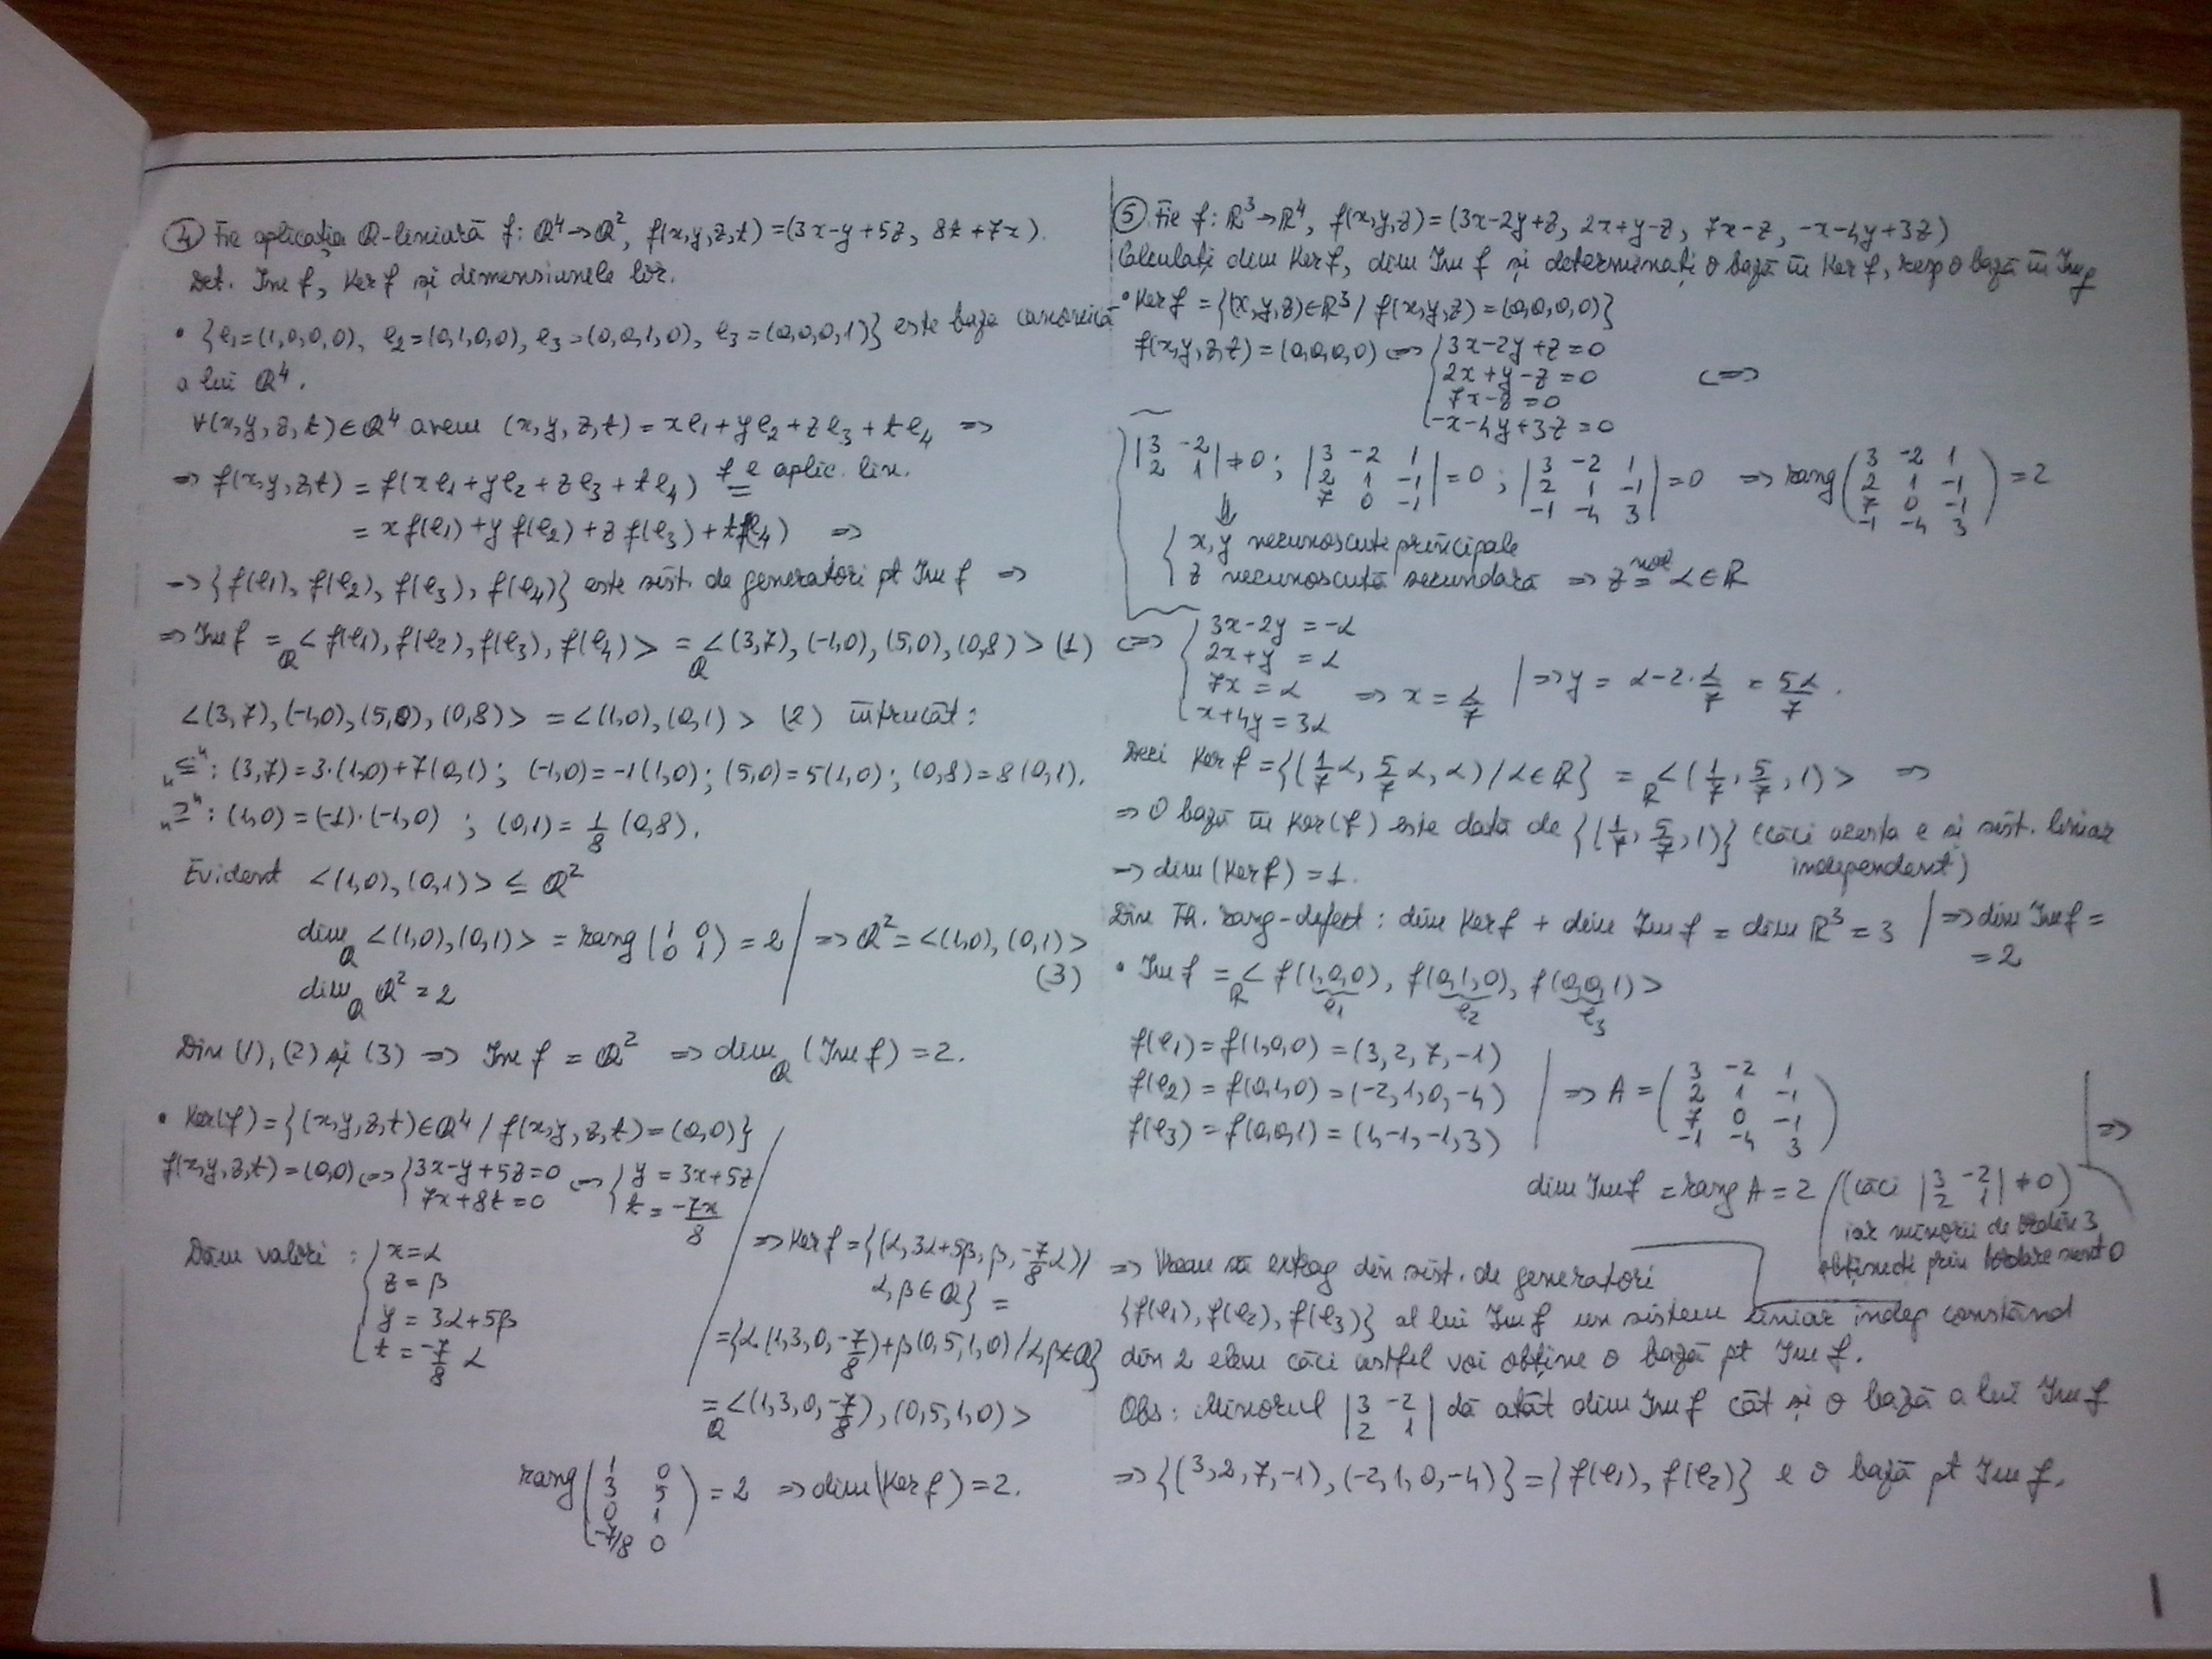 ④ Fie aplicația Q-liniară f: Q⁴→Q², f(x,y,z,t) = (3x-y+5z, 8t+7x).
Det. Im f, Ker f și dimensiunile lor.
• {e₁=(1,0,0,0), e₂=(0,1,0,0), e₃=(0,0,1,0), e₃=(0,0,0,1)} este baza canonică
a lui Q⁴.
∀(x,y,z,t)∈Q⁴ avem (x,y,z,t) = xe₁+ye₂+ze₃+te₄ =>
=> f(x,y,z,t) = f(xe₁+ye₂+ze₃+te₄) f e aplic. lin. =
= xf(e₁)+yf(e₂)+zf(e₃)+tf(e₄) =>
=> {f(e₁), f(e₂), f(e₃), f(e₄)} este sist. de generatori pt Im f =>
=> Im f = Q< f(e₁), f(e₂), f(e₃), f(e₄) > = Q< (3,7), (-1,0), (5,0), (0,8) > (1)
<(3,7), (-1,0), (5,0), (0,8)> = <(1,0), (0,1)> (2) întrucât:
"⊆": (3,7) = 3·(1,0)+7(0,1); (-1,0)=-1(1,0); (5,0)=5(1,0); (0,8)=8(0,1).
"⊇": (1,0) = (-1)·(-1,0) ; (0,1) = 1/8 (0,8).
Evident <(1,0), (0,1)> ≤ Q²
dim_Q <(1,0), (0,1)> = rang (1 0 / 0 1) = 2 | => Q² = <(1,0), (0,1)>
dim_Q Q² = 2 (3)
Din (1), (2) și (3) => Im f = Q² => dim_Q (Im f) = 2.
• Ker(f) = {(x,y,z,t)∈Q⁴ / f(x,y,z,t) = (0,0)}
f(x,y,z,t) = (0,0) <=> { 3x-y+5z=0 / 7x+8t=0 <=> { y = 3x+5z / t = -7x/8
Dăm valori : { x = α
z = β
y = 3α+5β
t = -7/8 α
=> Ker f = {(α, 3α+5β, β, -7/8 α) /
α, β ∈ Q} =
= {α(1,3,0,-7/8)+β(0,5,1,0) / α,β∈Q}
= Q<(1,3,0,-7/8), (0,5,1,0)>
rang (1 0 / 3 5 / 0 1 / -7/8 0) = 2 => dim(Ker f) = 2.
⑤ Fie f: R³→R⁴, f(x,y,z) = (3x-2y+z, 2x+y-z, 7x-z, -x-4y+3z)
Calculați dim Ker f, dim Im f și determinați o bază în Ker f, resp o bază în Im f
• Ker f = {(x,y,z)∈R³ / f(x,y,z) = (0,0,0,0)}
f(x,y,z,t) = (0,0,0,0) <=> { 3x-2y+z=0
2x+y-z=0 <=>
7x-z=0
-x-4y+3z=0
|3 -2 / 2 1| ≠ 0 ; |3 -2 1 / 2 1 -1 / 7 0 -1| = 0 ; |3 -2 1 / 2 1 -1 / -1 -4 3| = 0 => rang (3 -2 1 / 2 1 -1 / 7 0 -1 / -1 -4 3) = 2
⇓
{ x, y necunoscute principale
z necunoscută secundară => z not= α∈R
<=> { 3x-2y = -α
2x+y = α
7x = α => x = α/7 | => y = α-2·α/7 = 5α/7 .
x+4y = 3α
Deci Ker f = {(1/7 α, 5/7 α, α) / α∈R} = R<(1/7, 5/7, 1)> =>
=> O bază în Ker(f) este dată de {(1/7, 5/7, 1)} (căci acesta e și sist. liniar
independent)
=> dim(Ker f) = 1.
Din Th. rang-defect : dim Ker f + dim Im f = dim R³ = 3 | => dim Im f =
= 2
• Im f = R< f(1,0,0), f(0,1,0), f(0,0,1) >
e₁ e₂ e₃
f(e₁) = f(1,0,0) = (3, 2, 7, -1)
f(e₂) = f(0,1,0) = (-2, 1, 0, -4) | => A = (3 -2 1 / 2 1 -1 / 7 0 -1 / -1 -4 3) | =>
f(e₃) = f(0,0,1) = (1, -1, -1, 3)
dim Im f = rang A = 2 (căci |3 -2 / 2 1| ≠ 0)
iar minorii de ordin 3
obținuți prin bordare sunt 0
=> Vreau să extrag din sist. de generatori
{f(e₁), f(e₂), f(e₃)} al lui Im f un sistem liniar indep constând
din 2 elem căci astfel voi obține o bază pt Im f.
Obs: Minorul |3 -2 / 2 1| dă atât dim Im f cât și o bază a lui Im f
=> {(3,2,7,-1), (-2,1,0,-4)} = {f(e₁), f(e₂)} e o bază pt Im f.